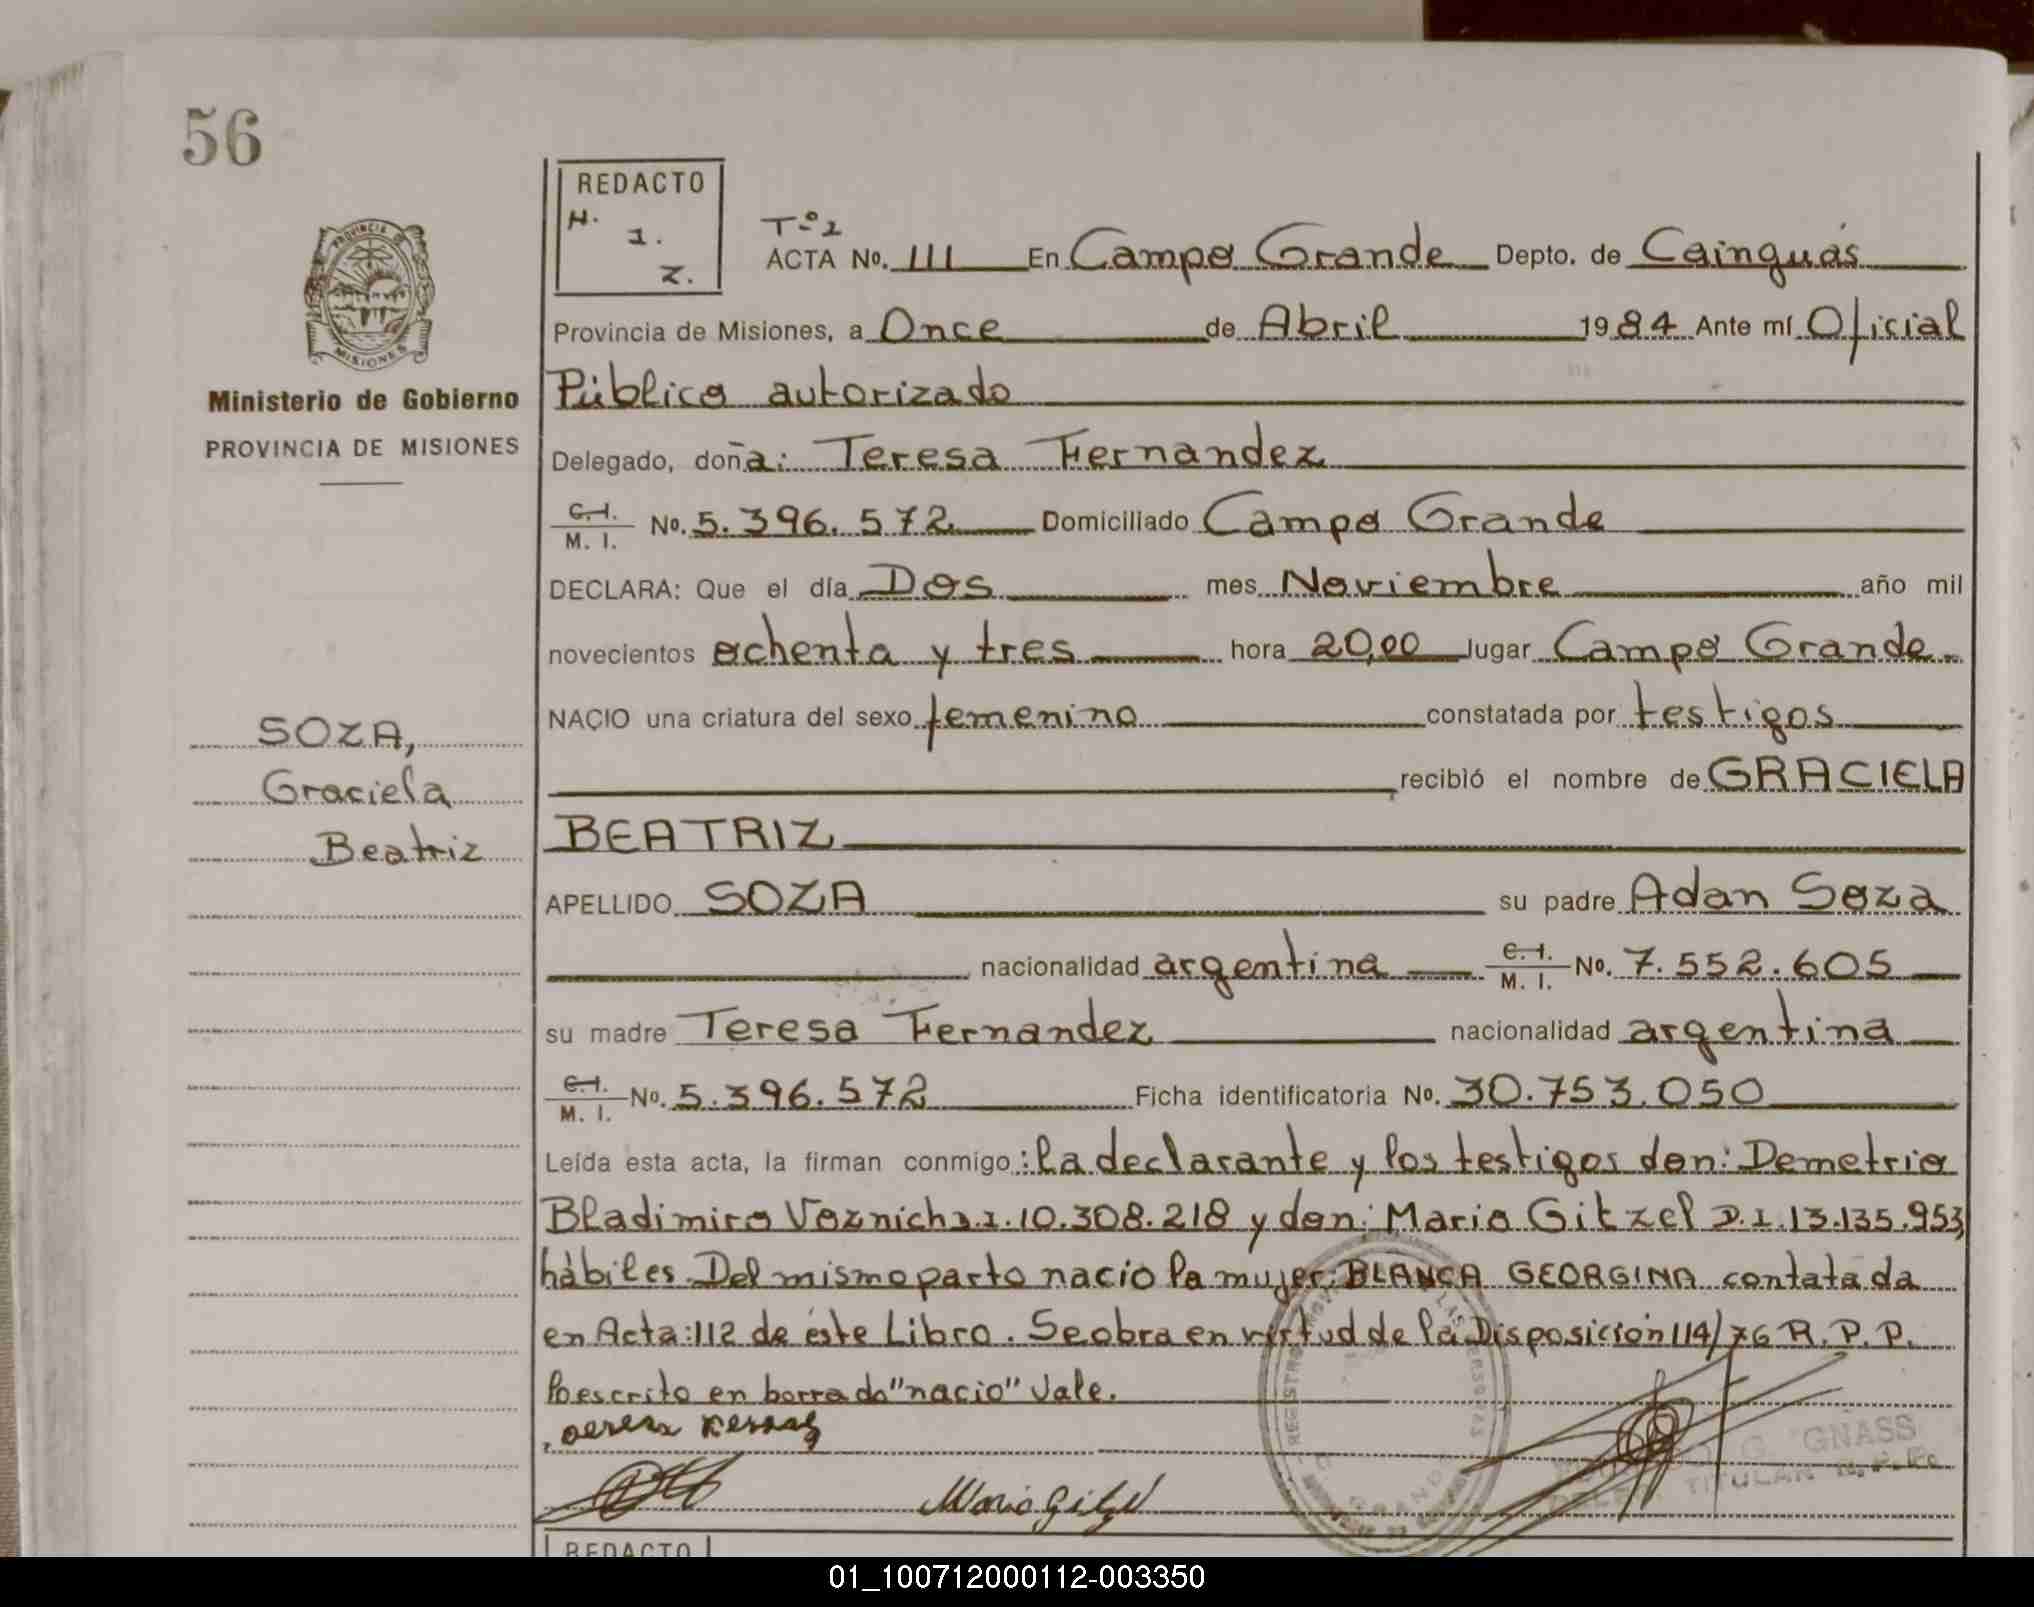 56
REDACTO
H.
1.
Z.
Tº 2
ACTA No. 111 En Campo Grande Depto. de Cainguás
Provincia de Misiones, a Once de Abril 1984 Ante mí Oficial
Público autorizado
Delegado, doña: Teresa Fernandez
C.I.
M. I. No. 5.396.572 Domiciliado Campo Grande
DECLARA: Que el día Dos mes Noviembre año mil
novecientos ochenta y tres hora 20,00 lugar Campo Grande.
NACIO una criatura del sexo femenino constatada por testigos
recibió el nombre de GRACIELA
BEATRIZ
APELLIDO SOZA su padre Adan Soza
nacionalidad argentina C.I. M. I. No. 7.552.605
su madre Teresa Fernandez nacionalidad argentina
C.I.
M. I. No. 5.396.572 Ficha identificatoria No. 30.753.050
Leída esta acta, la firman conmigo: la declarante y los testigos don: Demetrio
Bladimiro Voznich D.I. 10.308.218 y don: Mario Gitzel D.I. 13.135.953,
hábiles. Del mismo parto nacio la mujer: BLANCA GEORGINA contatada
en Acta: 112 de éste Libro. Se obra en virtud de la Disposición 114/76 R.P.P.
Lo escrito en borrado "nacio" Vale.
Mario Gitzel
G. GNASS
TITULAR
PROVINCIA DE
MISIONES
Ministerio de Gobierno
PROVINCIA DE MISIONES
SOZA,
Graciela
Beatriz
REDACTO
01_100712000112-003350